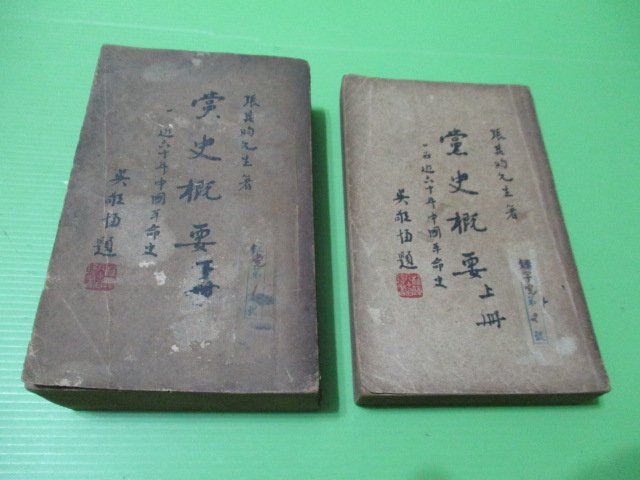 張其昀先生著
黨史概要下冊
一名近六十年中國革命史
吳敬恆題
張其昀先生著
黨史概要上冊
一名近六十年中國革命史
吳敬恆題